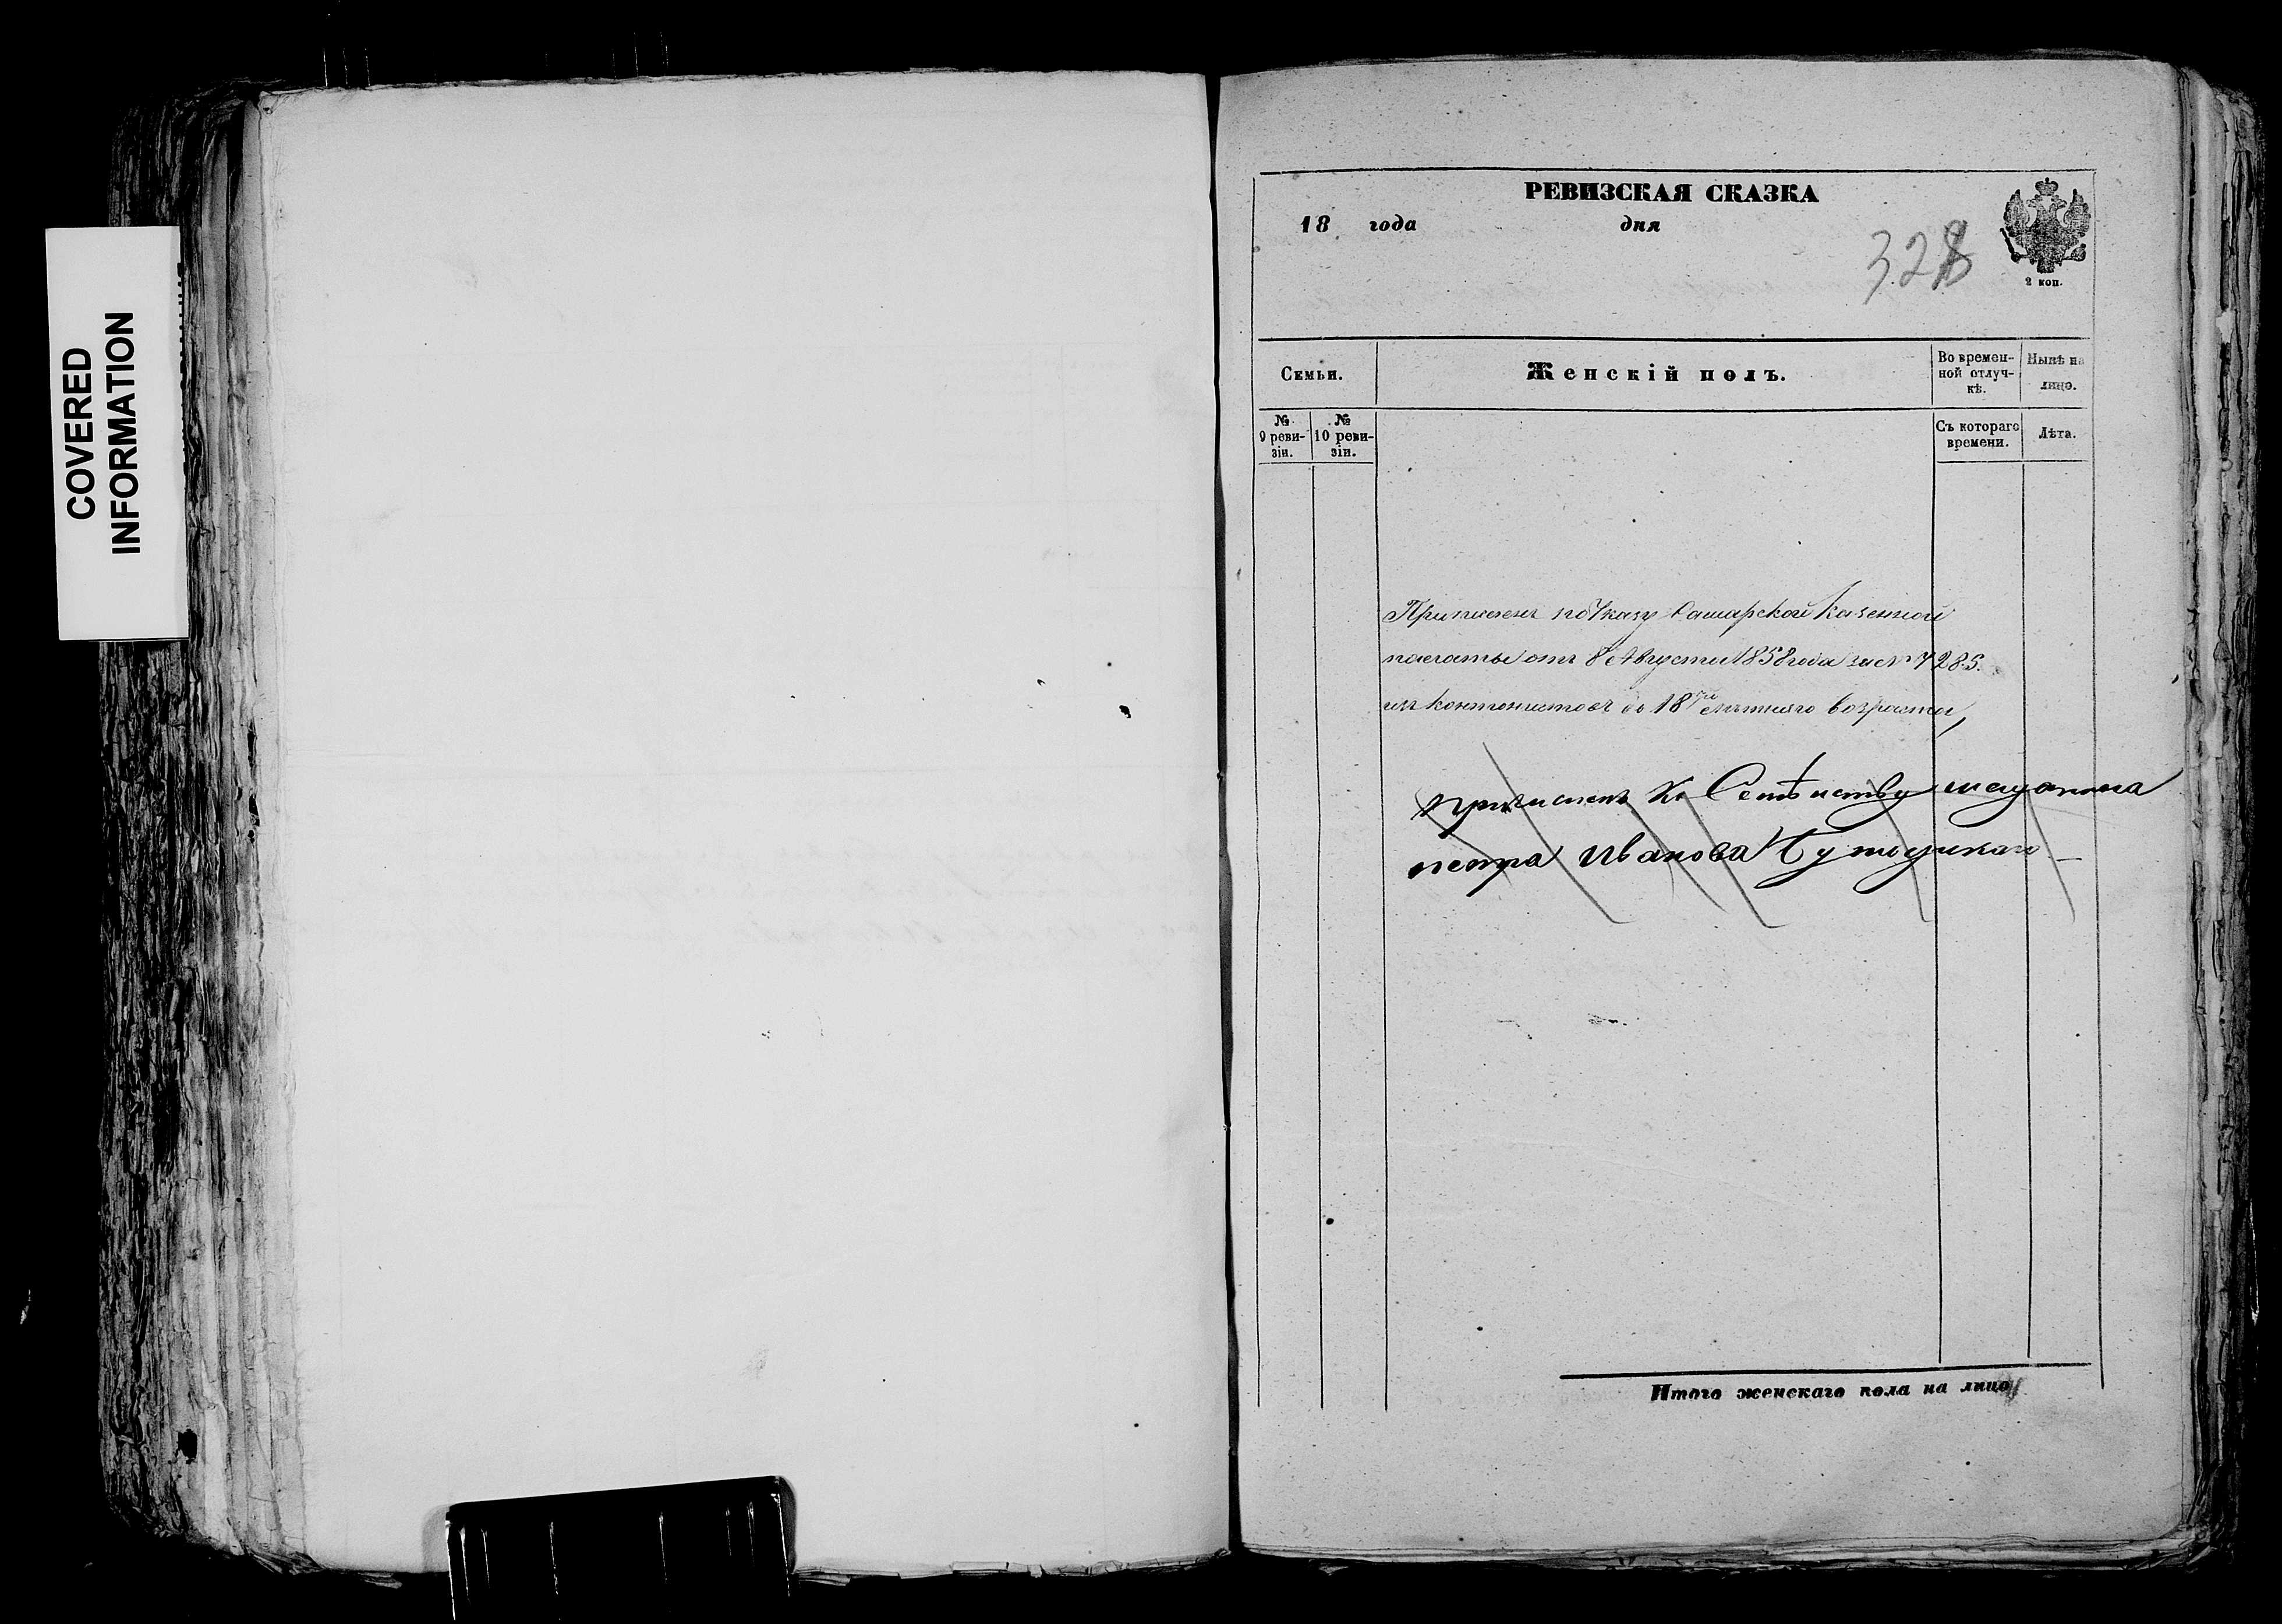 COVERED
INFORMATION
РЕВИЗСКАЯ СКАЗКА
18 года дня
328
2 коп.
Семьи.
Женскій полъ.
Во времен-
ной отлуч-
кѣ.
Нынѣ на
лицо.
№
9 реви-
зіи.
№
10 реви-
зіи.
Съ котораго
времени.
Лѣта.
по Указу Самарской Казенной
палаты отъ 8 Августа 1858 года за № 7285.
изъ кантонистовъ до 18ти лѣтняго возраста,
причисленъ къ Семѣиству мещанина
петра Иванова
Итого женскаго пола на лицо